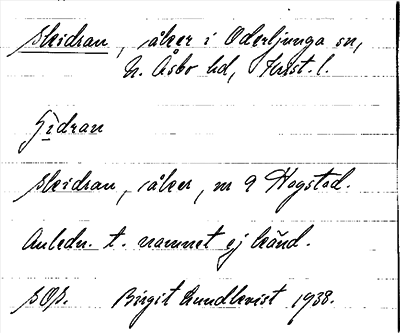 Skidran, åker i Oderljunga sn,
N. Åsbo hd, Krist. l.
Skidran, åker, nr 9 Hogstad.
Anledn. t. namnet ej känd.
SOS. Birgit Lundkvist 1938.